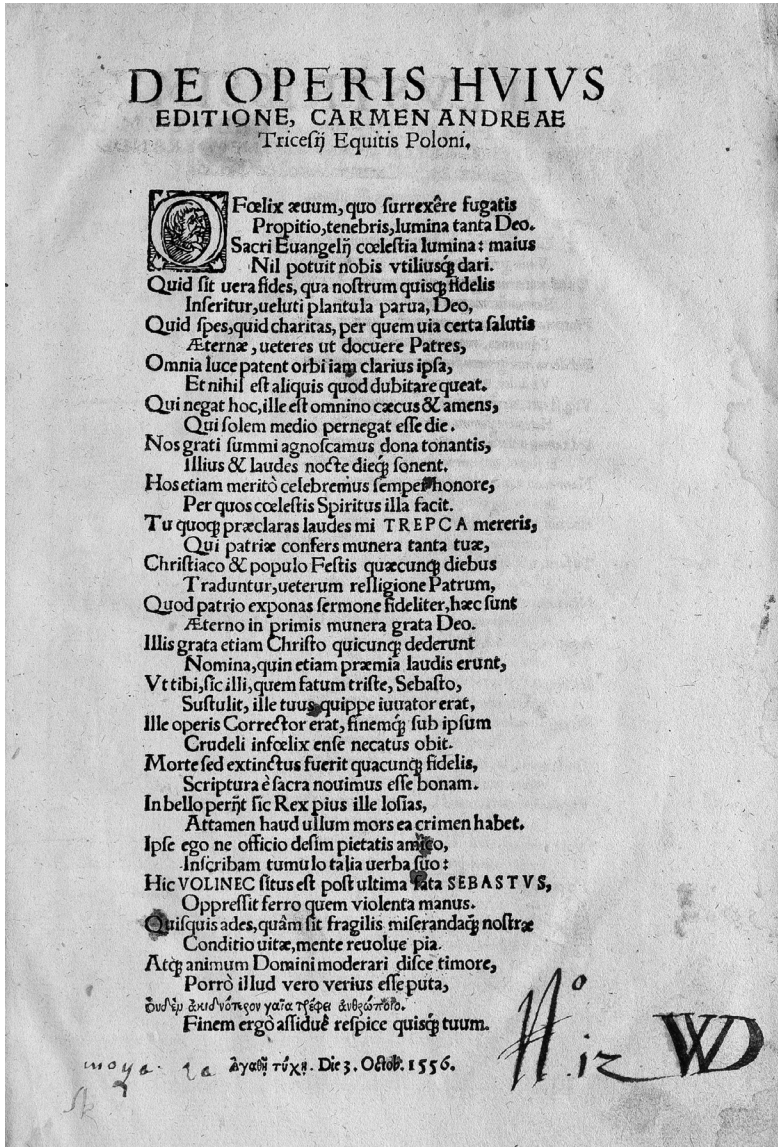 DE OPERIS HVIVS
EDITIONE, CARMEN ANDREAE
Triceſij Equitis Poloni.
O Fœlix æuum, quo ſurrexêre fugatis
Propitio, tenebris, lumina tanta Deo.
Sacri Euangelij cœleſtia lumina: maius
Nil potuit nobis vtiliusq́; dari.
Quid ſit uera fides, qua noſtrum quisq́; fidelis
Inſeritur, ueluti plantula parua, Deo,
Quid ſpes, quid charitas, per quem uia certa ſalutis
Æternæ, ueteres ut docuere Patres,
Omnia luce patent orbi iam clarius ipſa,
Et nihil eſt aliquis quod dubitare queat.
Qui negat hoc, ille eſt omnino cæcus & amens,
Qui ſolem medio pernegat eſſe die.
Nos grati ſummi agnoſcamus dona tonantis,
Illius & laudes nocte dieq́; ſonent.
Hos etiam meritò celebremus ſemper honore,
Per quos cœleſtis Spiritus illa facit.
Tu quoq; præclaras laudes mi TREPCA mereris,
Qui patriæ confers munera tanta tuæ,
Chriſtiaco & populo Feſtis quæcunq́; diebus
Traduntur, ueterum relligione Patrum,
Quod patrio exponas ſermone fideliter, hæc ſunt
Æterno in primis munera grata Deo.
Illis grata etiam Chriſto quicunq́; dederunt
Nomina, quin etiam præmia laudis erunt,
Vt tibi, ſic illi, quem fatum triſte, Sebaſto,
Suſtulit, ille tuus quippe iuuator erat,
Ille operis Corrector erat, finemq́; ſub ipſum
Crudeli infœlix enſe necatus obit.
Morte ſed extinctus fuerit quacunq́; fidelis,
Scriptura è ſacra nouimus eſſe bonam.
In bello perijt ſic Rex pius ille Ioſias,
Attamen haud ullum mors ea crimen habet.
Ipſe ego ne officio deſim pietatis amico,
Inſcribam tumulo talia uerba ſuo:
Hic VOLINEC ſitus eſt poſt ultima fata SEBASTVS,
Oppreſſit ferro quem violenta manus.
Quiſquis ades, quâm ſit fragilis miſerandaq́; noſtræ
Conditio uitæ, mente reuolue pia.
Atq́; animum Domini moderari diſce timore,
Porrò illud vero verius eſſe puta,
Ὀυδὲμ ἀκιδνότερον γαῖα τρέφει ἀνθρώποιο.
Finem ergò aſſiduè reſpice quisq́; tuum.
ἀγαθῇ τύχῃ. Die 3. Octob. 1556.
moya
12 WD